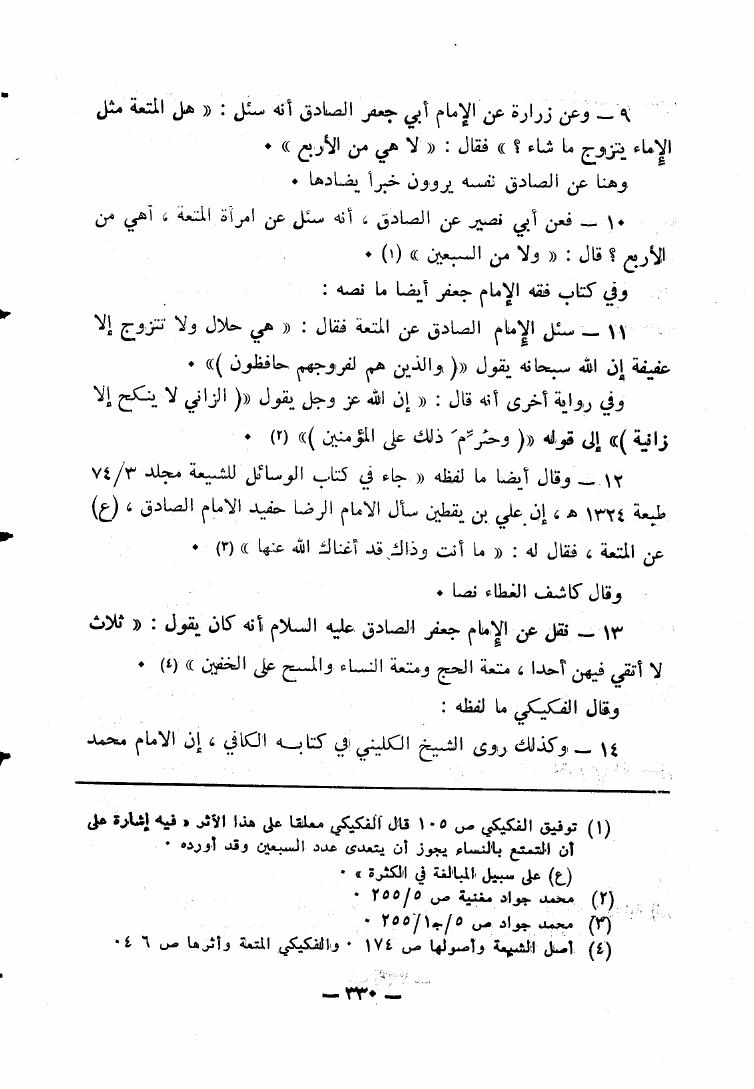 ٩ ــ وعن زرارة عن الإمام أبي جعفر الصادق أنه سئل : « هل المتعة مثل
الإماء يتزوج ما شاء ؟ » فقال : « لا هي من الأربع » ٠
وهنا عن الصادق نفسه يروون خبراً يضادها ٠
١٠ ــ فعن أبي نصير عن الصادق ، أنه سئل عن امرأة المتعة ، أهي من
الأربع ؟ قال : « ولا من السبعين » (١) ٠
وفي كتاب فقه الإمام جعفر أيضا ما نصه :
١١ ــ سئل الإمام الصادق عن المتعة فقال : « هي حلال ولا تتزوج إلا
عفيفة إن الله سبحانه يقول «( والذين هم لفروجهم حافظون )» ٠
وفي رواية أخرى أنه قال : « إن الله عز وجل يقول «( الزاني لا ينكح إلا
زانية )» إلى قوله «( وحُرِّمَ ذلك على المؤمنين )» (٢) ٠
١٢ ــ وقال أيضا ما لفظه « جاء في كتاب الوسائل للشيعة مجلد ٧٤/٣
طبعة ١٣٢٤ هـ ، إن علي بن يقطين سأل الامام الرضا حفيد الامام الصادق ، (ع)
عن المتعة ، فقال له : « ما أنت وذاك قد أغناك الله عنها » (٣) ٠
وقال كاشف الغطاء نصا ٠
١٣ ــ نقل عن الإمام جعفر الصادق عليه السلام أنه كان يقول : « ثلاث
لا أتقي فيهن أحدا ، متعة الحج ومتعة النساء والمسح على الخفين » (٤) ٠
وقال الفكيكي ما لفظه :
١٤ ــ وكذلك روى الشيخ الكليني في كتابه الكافي ، إن الامام محمد
(١) توفيق الفكيكي ص ١٠٥ قال الفكيكي معلقا على هذا الأثر « فيه إشارة على
أن التمتع بالنساء يجوز أن يتعدى عدد السبعين وقد أورده ٠
(ع) على سبيل المبالغة في الكثرة » ٠
(٢) محمد جواد مغنية ص ٢٥٥/٥ ٠
(٣) محمد جواد ص ٥/جـ٢٥٥/١ ٠
(٤) أصل الشيعة وأصولها ص ١٧٤ ٠ والفكيكي المتعة وأثرها ص ٦ ٠٤
ــ ٣٣٠ ــ